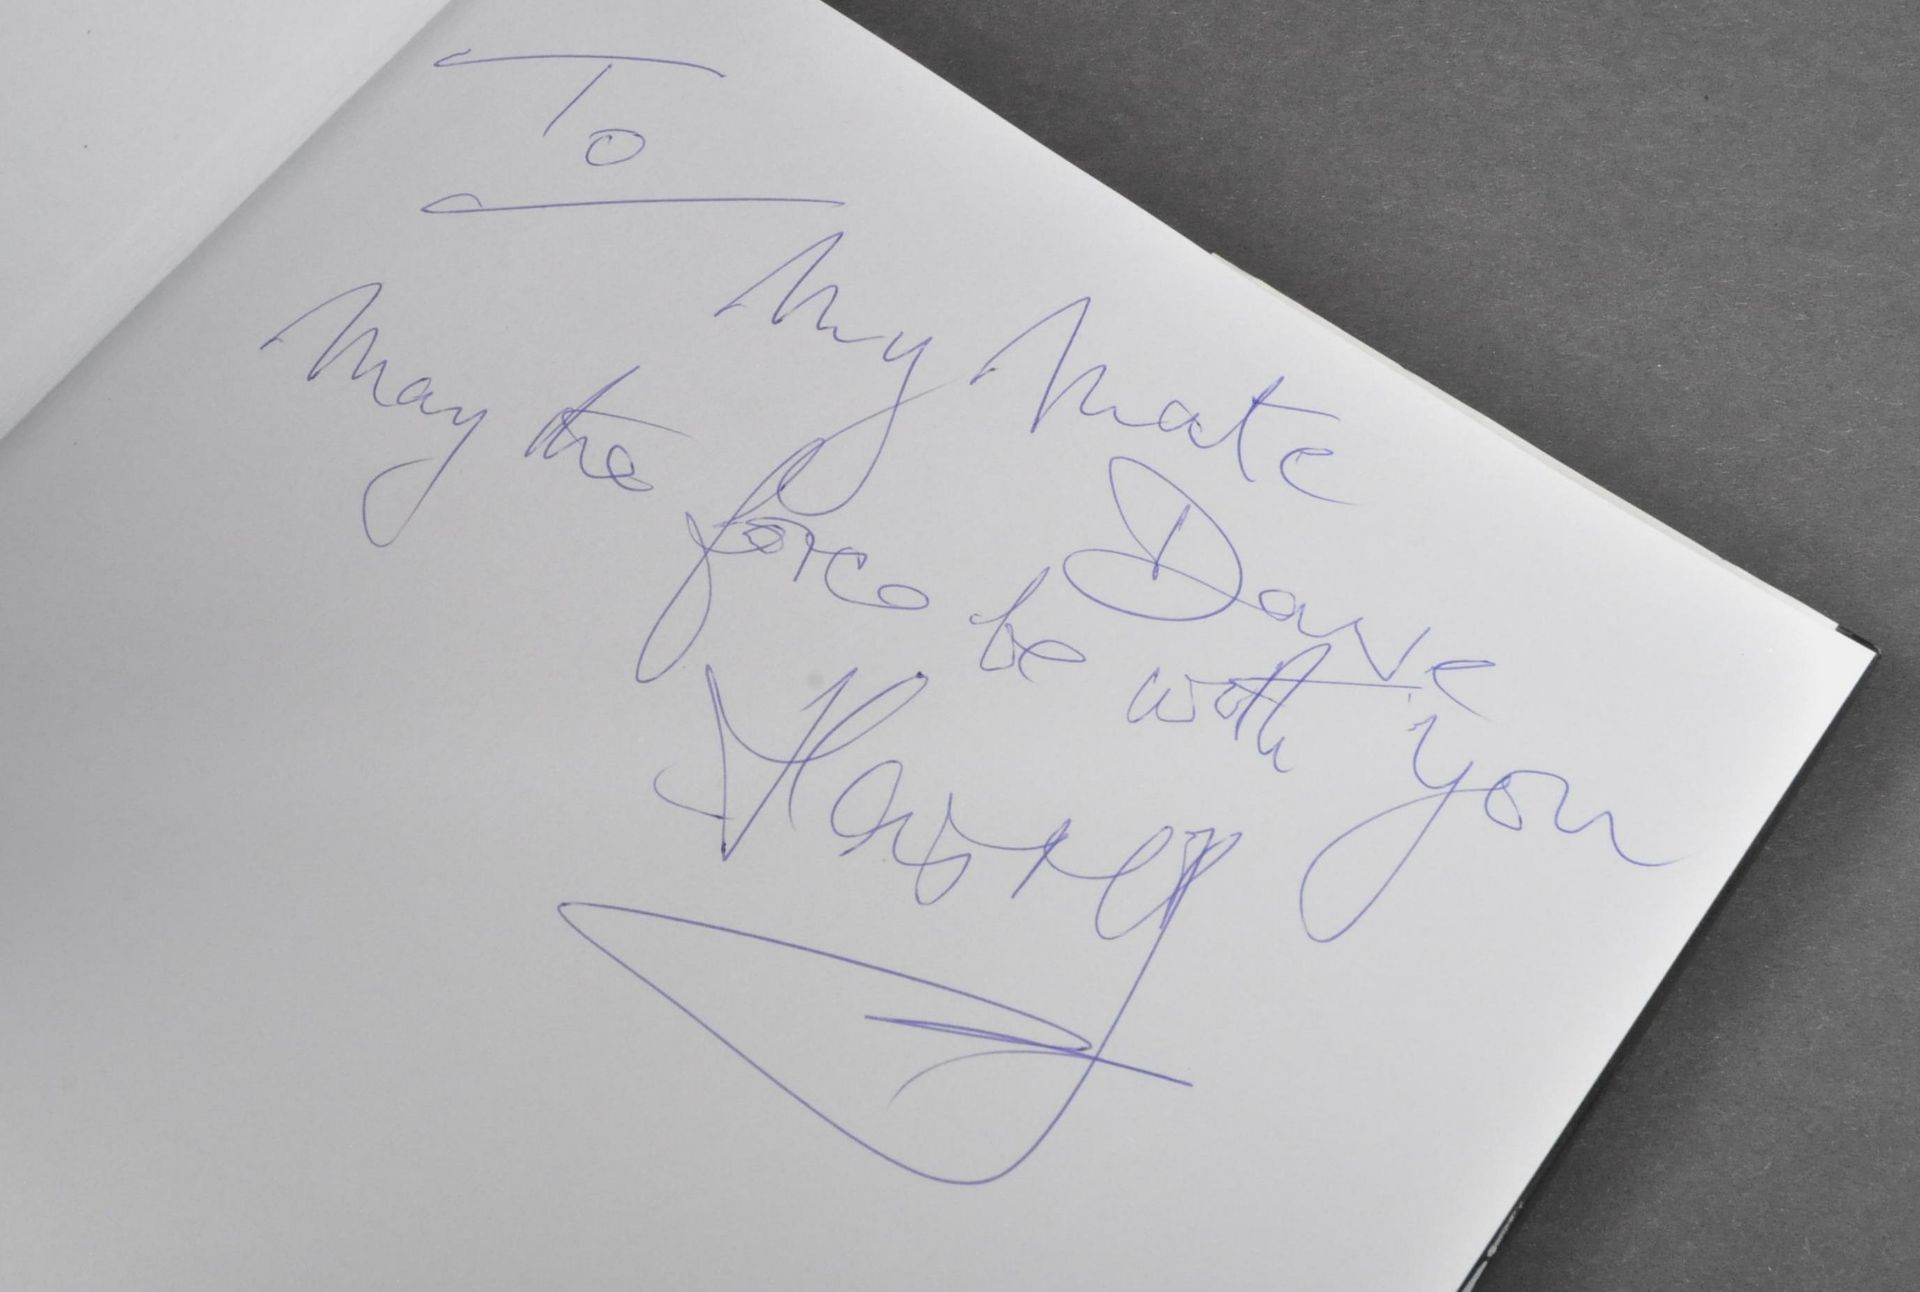 To
My Mate Dave
May the force be with you
Harry